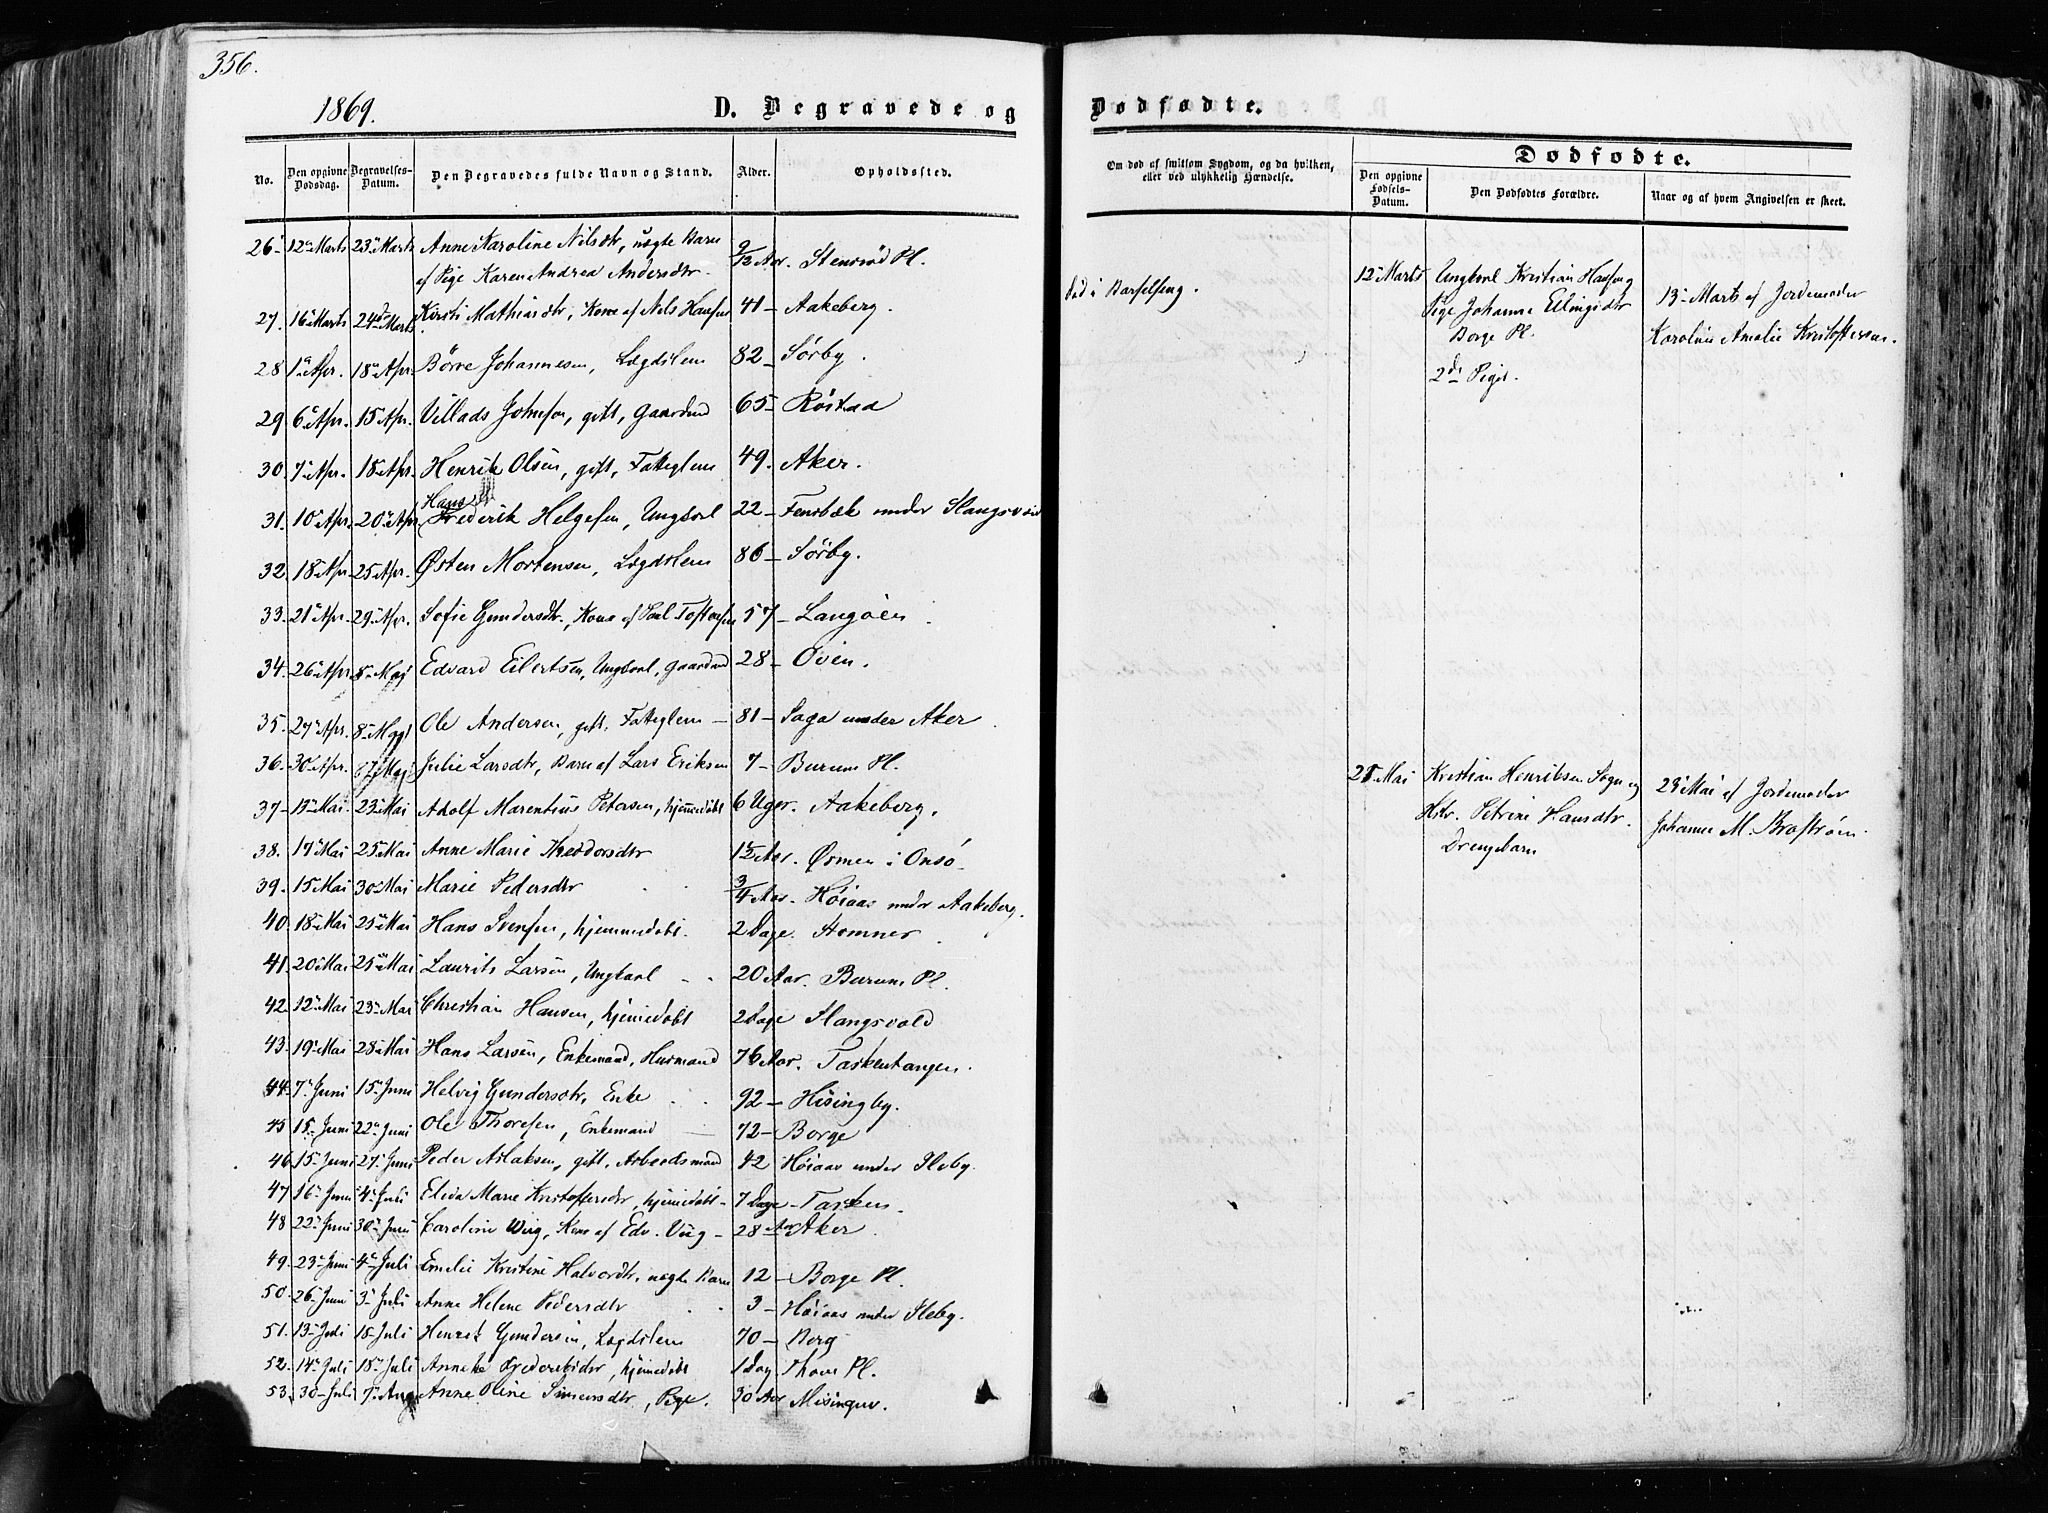 356.
1869.
D. Begravede og
No. Den opgivne Dödsdag. Begravelses-Datum. Den Begravedes fulde Navn og Stand. Alder. Opholdssted.
26 12te Marts 23de Marts Anne Karoline Nilsdtr, uægte Barn 9/12 Aar. Stensröd Pl.
af Pige Karen Andrea Andersdtr.
27. 16de Marts 24de Marts Kirsti Mathiasdtr, Kone af Nils Hansen 41 – Aakeberg.
28 1ste Apr. 18de Apr. Börre Johannesen, Lægdslem 82 – Sörby.
29 6te Apr. 15 Apr. Villads Johnsen, gift, Gaardmd 65 – Röstad
30. 7de Apr. 18de Apr. Henrik Olsen, gift, Fatteglem 49. Aker.
Hans
31. 10de Apr. 20de Apr Frederik Helgesen, Ungkarl 22 – Fensbæk under Slangsvold
32. 18de Apr. 25 Apr. Østen Mortensen, Lægdslem 86 – Sörby.
33. 21de Apr. 29. Apr. Sofie Gundersdtr., Kone af Paul Tostensen 57 – Langöen
34. 26de Apr. 8de Maj Edvard Eilertsen, Ungkarl, Gaardmd 28 – Öien.
35. 27de Apr. 8de Maj Ole Andersen, gift, Fatteglem – 81 – Saga under Aker
36. 30te Apr. Maj Julie Larsdtr, Barn af Lars Eriksen 7 – Burum Pl.
37 – 13de Mai 23de Mai Adolf Marentius Petersen, hjemmedöbt 6 Uger. Aakeberg.
38. 17de Mai 25 Mai Anne Marie Aar. Ørmen i Onsö
39. 15 Mai 30te Mai Marie Pedersdtr 3/4 Aar. Höiaas under Aakeberg.
40. 18de Mai 25de Mai Hans Svensen, hjemmedöbt. 2 Dage. Stomner
41. 20de Mai 25de Mai Laurits Larsen, Ungkarl 20 Aar. Burum Pl.
42. 12te Mai 23de Mai Christian Hansen, hjemmedöbt 2 Dage Slangsvold
43. 19de Mai 28de Mai Hans Larsen, Enkemand, Husmand 76 Aar. Taskentangen.
44. 7de Juni 15de Juni Helvig Gundersdtr, Enke 92 – Hisingby.
45 15. Juni 22de Juni Ole Thoresen, Enkemand 72 – Borge
46. 15de Juni 27. Juni Peder Aslaksen, gift, Arbeidsmand 42 Höiaas under Sleby.
47 16de Juni 4de Juli Elida Marie Kristoffersdtr, hjemmedöbt – 7 Dage – Tasken.
48 22de Juni 30te Juni Caroline Wiig, Kone af Edv. Viig – 28 Aar Aker
49. 23de Juni 4de Juli Emelie Kristine Halvordtr, uægte Barn 12 – Borge Pl.
50. 26de Juni 3de Juli Anne Helene Pedersdtr 3 – Höiaas under Sleby.
51. 13de Juli 18 Juli Henrik Gundersen, Lægdslem 70 – Borg
52. 14de Juli 18de Juli Anneke hjemmedöbt 1 Dag Thorn Pl.
53. 30. Juli 7de Aug Anne Oline Simensdtr, Pige. 30 Aar Misingen.
Dödfödte.
Om död af smitsom Sygdom, og da hvilken, eller ved ulykkelig Hændelse.
Dödfödte.
Den opgivne Födsels-Datum. Den Dödfödtes Forældre. Naar og af hvem Angivelsen er skeet.
död i Barselseng.
12te Marts Ungkarl Kristian Hansen og
Pige Johanne Ellingsdtr
Borge Pl.
2de Piger.
13de Marts af Jordemoder
Karoline Amalie Kristoffersen.
28 Mai Kristian Henriksen og
Hstr. Petrine Hansdtr.
Drengebarn
29de Mai af Jordemoder
Johanne M. Broström.